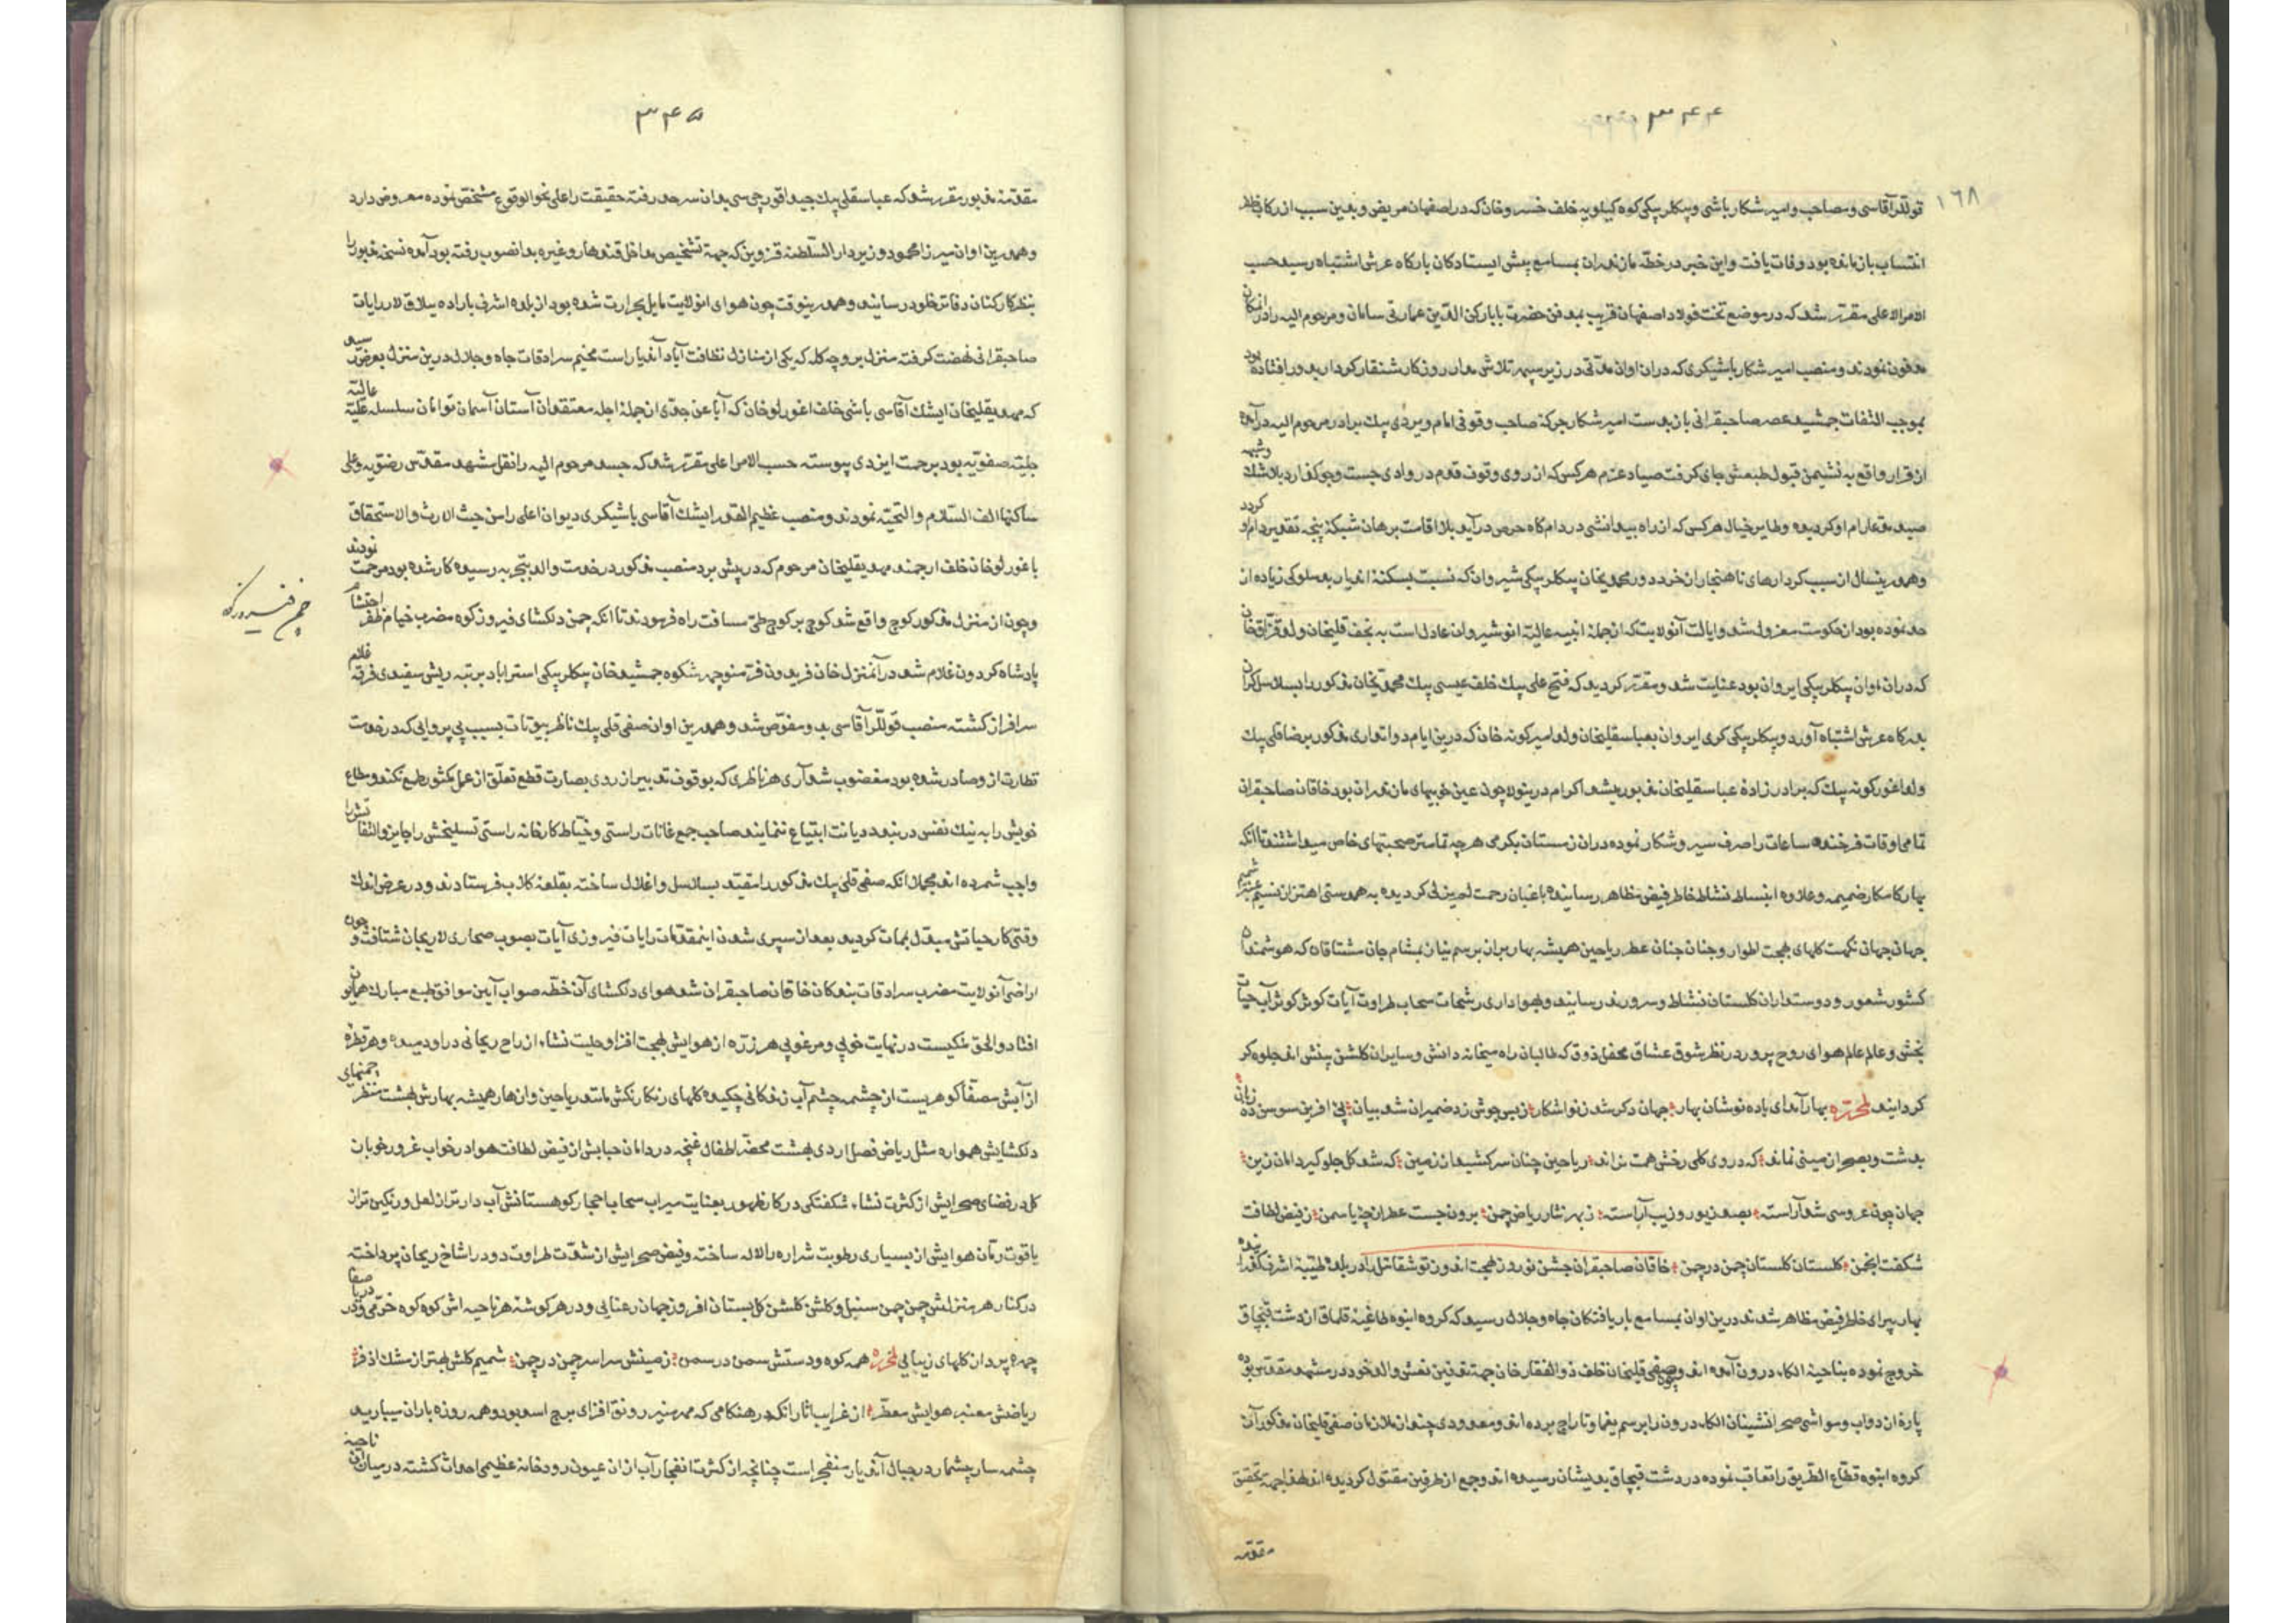 ٣۴۴
١٦٨
قوللر آقاسی و مصاحب و امیر شکار باشی و بیکلر بیکی کوه کیلویه خلف خسرو خان که در اصفهان مریض و بدین سبب از رکاب ظفر
انتساب باز مانده بود وفات یافت و این خبر در خطه مازندران بمسامع پیش ایستادکان بارکاه عرش اشتباه رسید حسب
الامر الاعلی مقرر شد که در موضع تخت فولاد اصفهان قریب بمدفن حضرت بابا رکن الدین عمارتی سامان و مرحوم الیه را در انمکان
مدفون نمودند و منصب امیر شکار باشیکری که دران اوان مدتی در زیر سپهر تلاش مدار روزکار شنقار کردار بدور افتاده بود
بموجب التفات جمشید عصر صاحبقرانی باز بدست امیر شکار جرکه صاحب وقوفی امام ویردی بیک برادر مرحوم الیه در آمده
از قرار واقع به نشیمن قبول طبعش جای کرفت صیاد عزم هر کس که از روی وقوف قدم در وادی جست وجو کذارد بلاشک و شبهه
صید مدعا رام او کردیده و طایر خیال هر کس که از راه بیدانشی در دامکاه حرص درآید بلا اقامت برهان شبکه پنجه تقدیر دام او کردد
و همدرینسال از سبب کردارهای ناهنجار ان خرد دور محمدیخان بیکلر بیکی شیروان که نسبت بسکنه اندیار بدسلوکی زیاده از
حد نموده بود از حکومت معزول شد و ایالت آنولایت که از جمله ابنیه عالیه انوشیروان عادل است به نجف قلیخان ولد قزاق خان
که دران اوان بیکلر بیکی ایروان بود عنایت شد و مقرر کردید که فتح علی بیک خلف عیسی بیک محمدیخان مذکور را بسلاسل کران
بدرکاه عرش اشتباه آورد و بیکلر بیکی کری ایروان بعباسقلیخان ولد امیر کونه خان که درین ایام دواتداری مذکور برضا قلی بیک
ولد اغور کونه بیک که برادر زاده عباسقلیخان مذبور میشد اکرام درینولا چون عین خوبیهای مازندران بود خاقان صاحبقران
تمامی اوقات فرخنده ساعات را صرف سیر و شکار نموده دران زمستان بکرمی هر چه تمامتر صحبتهای خاص میداشتند تا انکه
بهار کامکار ضمیمه و علاوه انبساط نشاط خاطر فیض مظاهر رسانیده باغبان رحمت لم یزلی کردیده به همدستی اهتزاز نسیم عنبر شمیم
جهان جهان نکهت کلهای بهجت اطوار و جنان جنان عطر ریاحین همیشه بهار بران برسم نیاز بمشام جان مشتاقان که هوشمندان
کشور شعور و دوستداران کلستان نشاط و سرورند رسانید و بهواداری رشحات سحاب طراوت آیات کوش کوش آب حیات
بخشی و عالم عالم هوای روح پرور در نظر شوق عشاق محفل ذوق که طالبان راه میخانه دانش و سایران کلشن بینش اند جلوه کر
کردانید لمحرره بهار آمد ای باده نوشان بهار جهان دکر شد ز نو اشکار ز بس جوش زد ضمیران شد بیان پی افرین سوسن ده زبان
بدشت و بصحرا زمینی نماند که در وی کلی رخش همت نراند ریاحین چنان سرکشید از زمین که شد کل جلو کیر دامان زین
جهان چون عروسی شد آراسته بصد زیور و زیب آراسته ز بهر نثار ریاض چمن برون جست عطر از چنا یاسمن ز فیض لطافت
شکفت انجمن کلستان کلستان چمن در چمن خاقان صاحبقران جشن نوروز بهجت اندوز توشقان ئیل را در بلده طیبه اشرف کذرانیده
بهار پیرای خاطر فیض مظاهر شدند درین اوان بمسامع باریافتکان جاه و جلال رسید که کروه انبوه طاغیه قلماق از دشت قبچاق
خروج نموده بناحیه الکاء درون آمده اند و چون صفی قلیخان خلف ذوالفقار خان جهة تدفین نعش والد خود در مشهد مقدس بوده
پاره از دواب و مواشی صحرانشینان الکاء درون را برسم یغما و تاراج برده اند و معدودی چند از ملازمان صفی قلیخان مذکور آن
کروه انبوه قطاع الطریق را تعاقب نموده در دشت قبچاق بدیشان رسیده اند و جمع از طرفین مقتول کردیده اند لهذا جهة تحقیق
مقدمه
٣۴۵
مقدمه مذبور مقرر شد که عباسقلی بیک جبدار قورچی سی بدان سرحد رفته حقیقت را علی نحو الوقوع مشخص نموده معروض دارد
و همدرین اوان میرزا محمود وزیر دار السلطنه قزوین که جهة تشخیص مداخل قندهار و غیره بدانصوب رفته بود آمده نسخه مذبور را
بنظر کارکنان دفاتر خلود رسانید و همدرینوقت چون هوای انولایت مایل بحرارت شده بود از بلده اشرف باراده ییلاق لار رایات
صاحبقرانی نهضت کرفته منزل بروچه کله که یکی از منازل نظافت آباد آندیار است مخیم سرادقات جاه و جلال درین منزل بعرض رسید
که مهدیقلیخان ایشک آقاسی باشی خلف اغورلو خان که آبا عن جدی از جمله اجله معتقدان آستان آسمان توامان سلسله علیه عالیه
جلیه صفویه بود برحمت ایزدی پیوسته حسب الامر اعلی مقرر شد که جسد مرحوم الیه را نقل مشهد مقدس رضویه و علی
ساکنها الف السلام والتحیه نمودند و منصب عظیم القدر ایشک آقاسی باشیکری دیوان اعلی را من حیث الارث والاستحقاق
باغورلو خان خلف ارجمند مهدیقلیخان مرحوم که در پیش برد منصب مذکور در خدمت والد بتجربه رسیده کار شده بود مرحمت نمودند
و چون از منزل مذکور کوچ واقع شد کوچ بر کوچ طی مسافت راه فرمودند تا انکه چمن دلکشای فیروزکوه مضرب خیام ظفر احتشام
چمن فیروزکوه
پادشاه کردون غلام شد در آنمنزل خان فریدون فر منوچهر شکوه جمشید خان بیکلر بیکی استراباد برتبه ریش سفیدی فرقه غلام
سرافراز کشته منصب قوللر آقاسی بدو مفوض شد و همدرین اوان صفی قلی بیک ناظر بیوتات بسبب بی پروایی که در خدمت
نظارت ازو صادر شده بود مغضوب شد آری هر ناظری که بوقوف تدبیر از روی بصارت قطع تعلق از عمل کشور طمع نکند و متاع
خویش را به نیک نفسی در بندد دیانت ابتیاع ننماید صاحب جمع غانات راستی و خیاط کارخانه راستی تسلیخش را جایز و التفاتش را
واجب شمرده اند مجملا انکه صفی قلی بیک مذکور را مقید بسلاسل و اغلال ساخته بقلعه کلاب فرستادند و در عرض اندک
وقتی کار حیاتش مبدل بممات کردید بعد از سپری شدن اینمقدمات رایات فیروزی آیات بصوب صحاری لاریجان شتافت و چون
اراضی آنولایت مضرب سرادقات بندکان خاقان صاحبقران شد هوای دلکشای آن خطه صواب آیین موافق طبع مبارک همایون
افتاد و الحق ملکیست در نهایت خوبی و مرغوبی هر ذره از هوایش بهجت افزا و حلیت نشاء از راح ریحانی در او دمیده و هر قطره
از آبش مصفا کوهریست از چشمه چشم آب زندکانی چکیده کلهای رنکارنکش مانند ریاحین وازهار همیشه بهارش بهشت منظر چمنهای
دلکشایش همواره مثل ریاض فصل اردی بهشت مخضر اطفال غنچه در دامان حبابش از فیض لطافت هوا در خواب غرور خوبان
کل در فضای صحرایش از کثرت نشاء شکفتکی در کار ظهور بعنایت میراب سحاب احجار کوهستانش آب دار تر از لعل و رنکین تر از
یاقوت رمان هوایش از بسیاری رطوبت شراره را لاله ساخته و فیض صحرایش از شدت طراوت دود را شاخ ریحان پرداخته
در کنار هر منزلش چمن چمن سنبل و کلشن کلشن کل بستان افروز جهان رعنایی و در هر کوشه هر ناحیه اش کوه کوه خرمی و دریا دریا صفا
چهره پرداز کلهای زیبایی لمحرره همه کوه و دشتش سمن در سمن زمینش سراسر چمن در چمن شمیم کلش بهتر از مشک اذفر
ریاضش معنبر هوایش معطر از غرایب اثار انکه در هنکامی که مهر منیر رونق افزای برج اسد بود و همه روزه باران میبارید
چشمه سار چشمار در جبال آندیار منفجر است چنانچه از کثرت انفجار آب از ان عیون رودخانه عظیمی احداث کشته در میان آن ناحیه